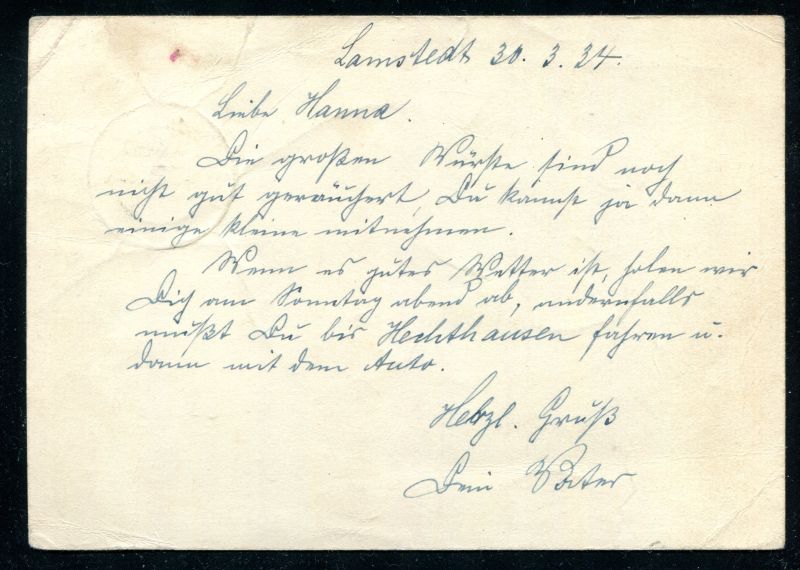 Lamstedt 30. 3. 34.
Liebe Hanna.
Die großen Würste sind noch
nicht gut geräuchert, Du kannst ja dann
einige kleine mitnehmen.
Wenn es gutes Wetter ist, holen wir
Dich am Sonntag abend ab, andernfalls
mußt Du bis Hechthausen fahren u.
dann mit dem Auto.
Herzl. Gruß
Dein Vater